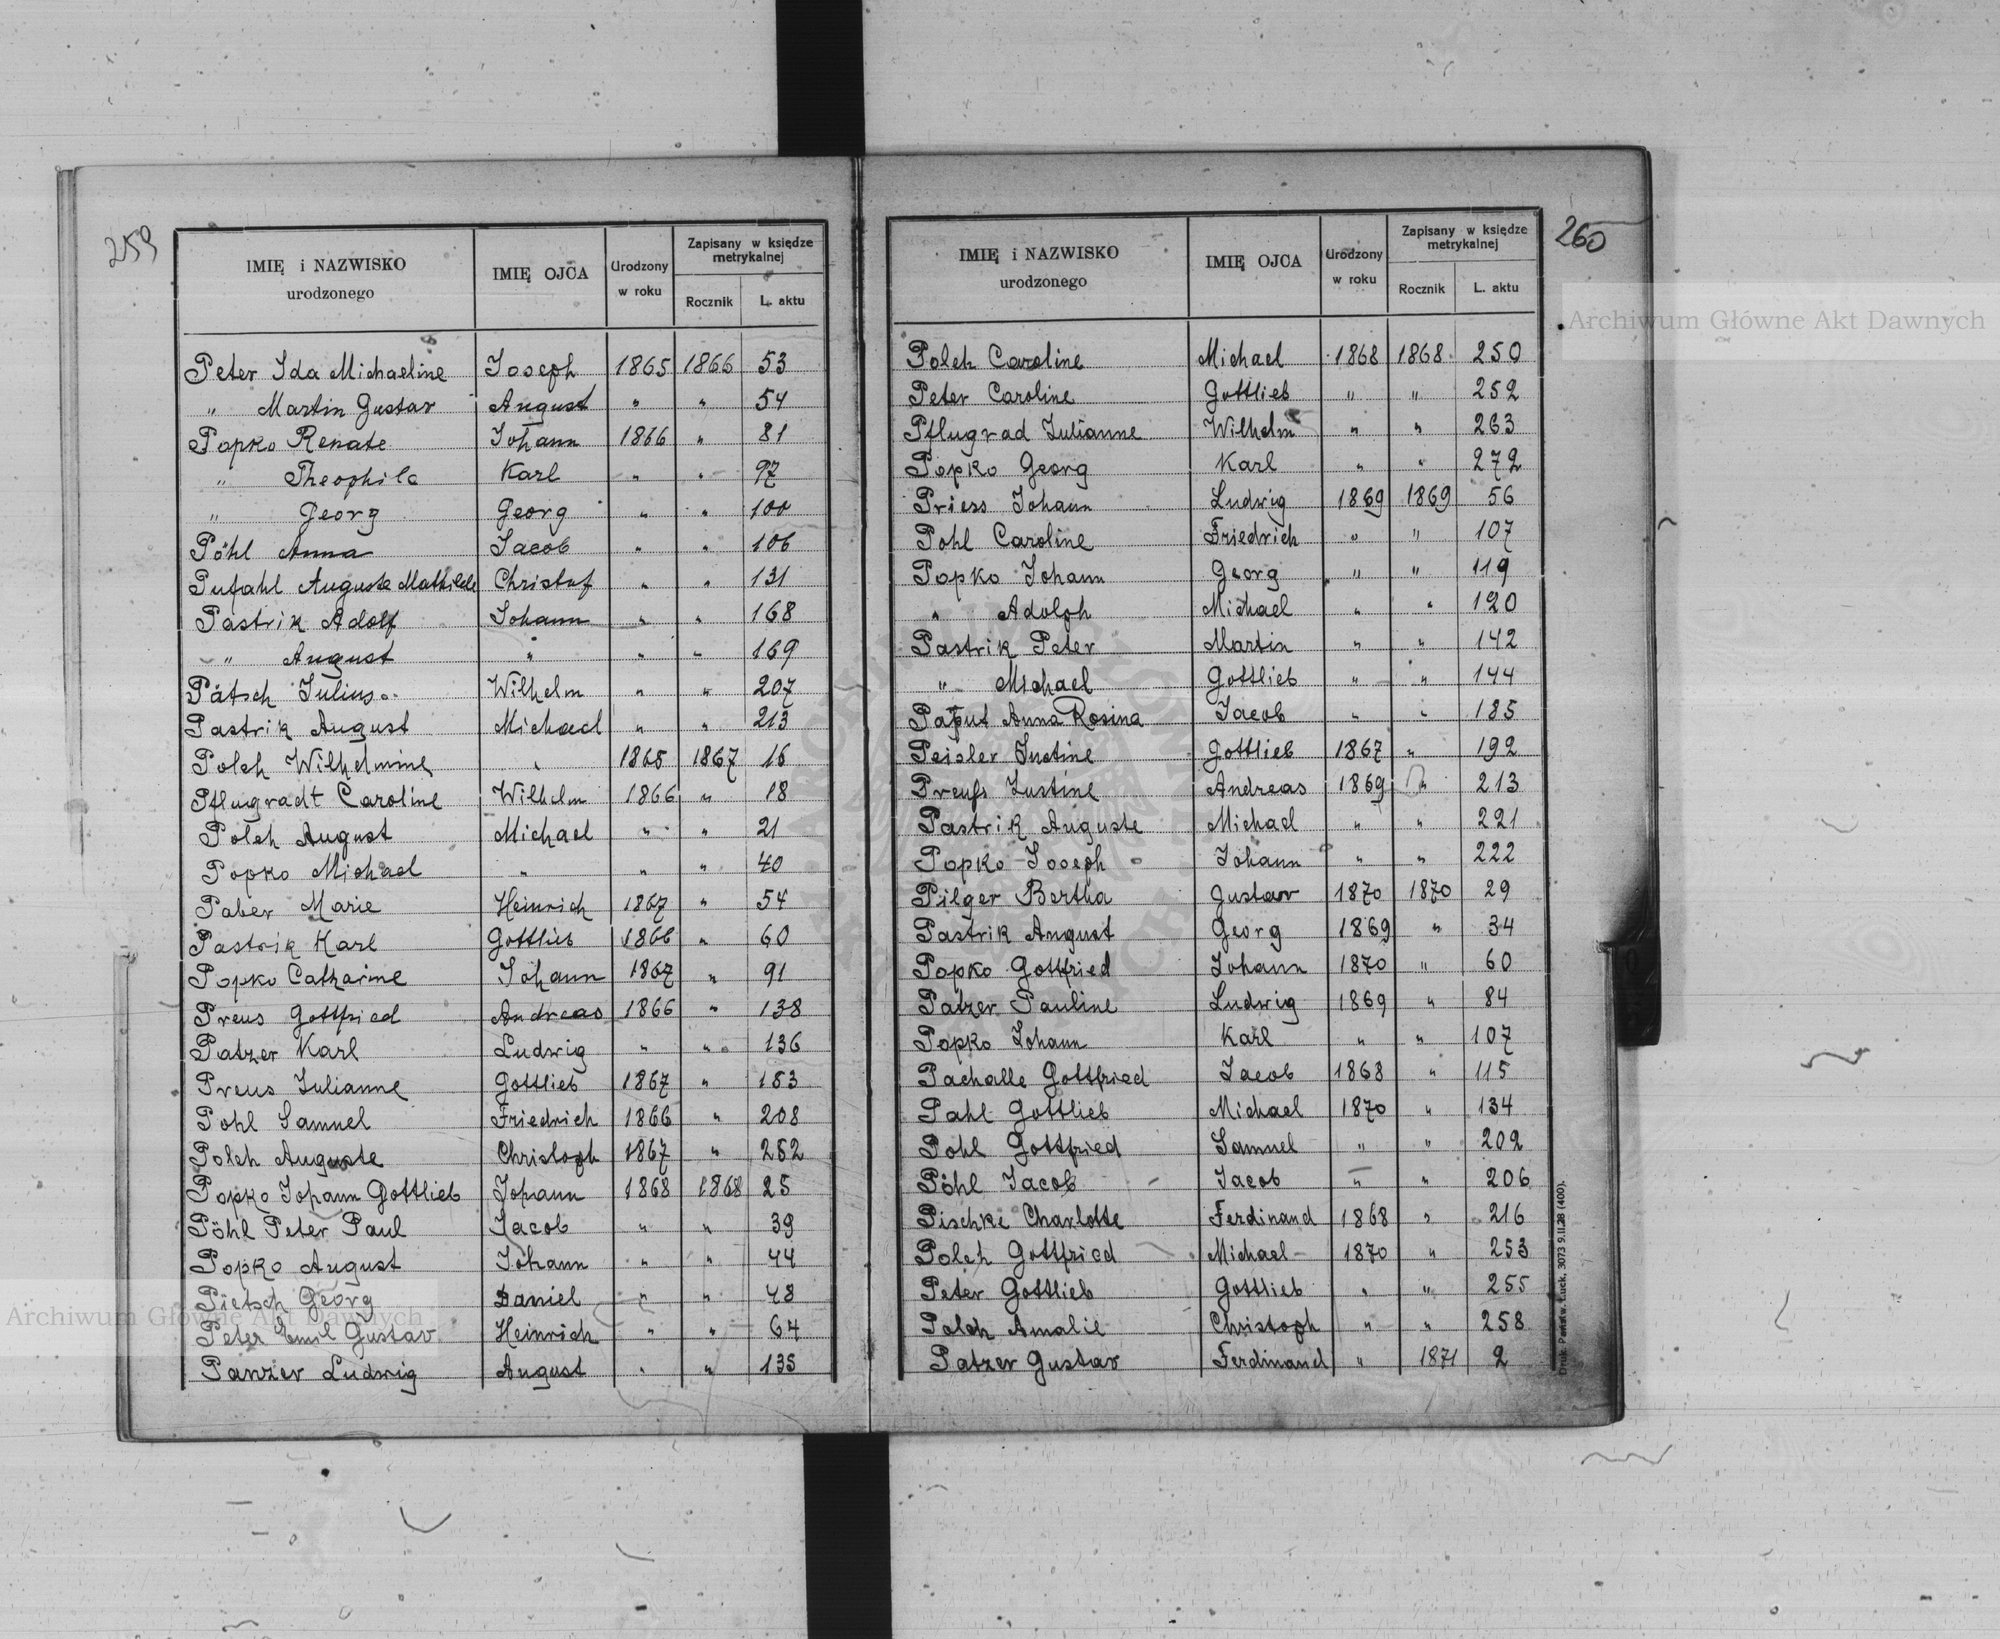 259
IMIĘ i NAZWISKO urodzonego IMIĘ OJCA Urodzony w roku Zapisany w księdze metrykalnej Rocznik L. aktu
Peter Ida Michaeline Joseph 1865 1866 53
" Martin Gustav August " " 54
Popko Renate Johann 1866 " 81
" Theophile Karl " " 97
" Georg Georg " " 100
Pöhl Anna Jacob " " 106
Pufahl Auguste Mathilde Christof " " 131
Pastrik Adolf Johann " " 168
" August " " " 169
Pätsch Julius Wilhelm " " 207
Pastrik August Michael " " 213
Polch Wilhelmine " 1865 1867 16
Pflugradt Caroline Wilhelm 1866 " 18
Polch August Michael " " 21
Popko Michael " " " 40
Paber Marie Heinrich 1867 " 54
Pastrik Karl Gottlieb 1866 " 60
Popko Catharine Johann 1867 " 91
Preus Gottfried Andreas 1866 " 138
Patzer Karl Ludwig " " 136
Preus Julianne Gottlieb 1867 " 183
Pohl Samuel Friedrich 1866 " 208
Polch Auguste Christoph 1867 " 252
Popko Johann Gottlieb Johann 1868 1868 25
Pöhl Peter Paul Jacob " " 39
Popko August Johann " " 44
Pietsch Georg Daniel " " 48
Peter Emil Gustav Heinrich " " 64
Panzer Ludwig August " " 135
260
IMIĘ i NAZWISKO urodzonego IMIĘ OJCA Urodzony w roku Zapisany w księdze metrykalnej Rocznik L. aktu
Polch Caroline Michael 1868 1868 250
Peter Caroline Gottlieb " " 252
Pflugrad Julianne Wilhelm " " 263
Popko Georg Karl " " 272
Priess Johann Ludwig 1869 1869 56
Pohl Caroline Friedrich " " 107
Popko Johann Georg " " 119
" Adolph Michael " " 120
Pastrik Peter Martin " " 142
" Michael Gottlieb " " 144
Anna Rosina Jacob " " 185
Peisler Justine Gottlieb 1867 " 192
Preuß Justine Andreas 1869 " 213
Pastrik Auguste Michael " " 221
Popko Joseph Johann " " 222
Pilger Bertha Gustav 1870 1870 29
Pastrik August Georg 1869 " 34
Popko Gottfried Johann 1870 " 60
Patzer Pauline Ludwig 1869 " 84
Popko Johann Karl " " 107
Pachalle Gottfried Jacob 1868 " 115
Pahl Gottlieb Michael 1870 " 134
Pöhl Gottfried Samuel " " 202
Pöhl Jacob Jacob " " 206
Pischke Charlotte Ferdinand 1868 " 216
Polch Gottfried Michael 1870 " 253
Peter Gottlieb Gottlieb " " 255
Polch Amalie Christoph " " 258
Patzer Gustav Ferdinand " 1871 2
Druk. Państw. Łuck, 3073 9.II.28 (400).
Archiwum Główne Akt Dawnych
Archiwum Główne Akt Dawnych